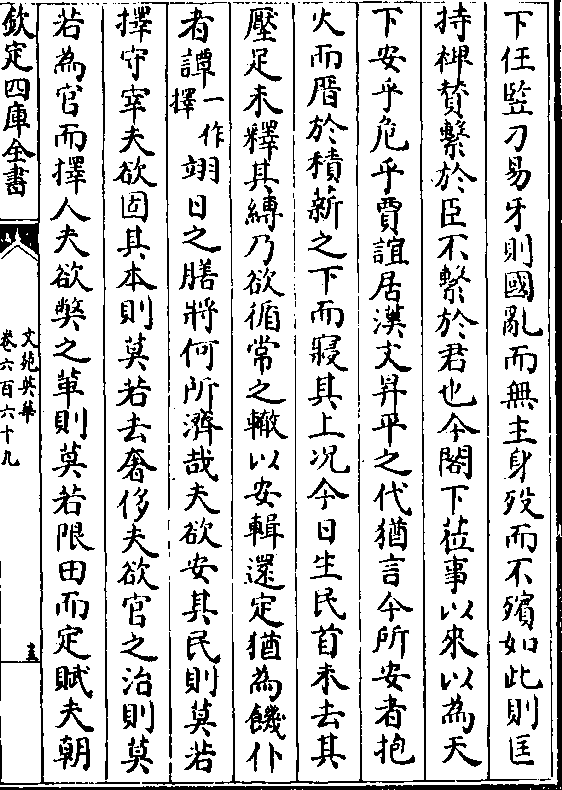 下任豎刁易牙則國亂而無主身歿而不殯如此則匡
持神贊繫於臣不繫於君也今閣下莅事以來以為天
下安乎危乎賈誼居漢文昇平之代猶言今所安者抱
火而厝於積薪之下而寢其上况今日生民首未去其
壓足未釋其縛乃欲循常之轍以安輯還定猶為饑仆
者譚一作擇翊日之膳將何所濟哉夫欲安其民則莫若
擇守宰夫欲固其本則莫若去奢侈夫欲官之治則莫
若為官而擇人夫欲弊之革則莫若限田而定賦夫朝
欽定四庫全書
文苑英華
卷六百六十九